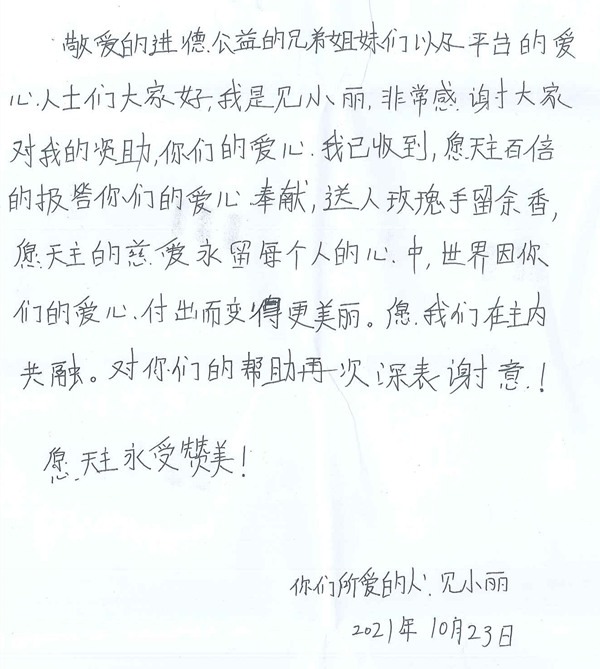 敬爱的进德公益的兄弟姐妹们以及平台的爱
心人士们大家好,我是见小丽,非常感谢大家
对我的资助,你们的爱心我已收到,愿天主百倍
的报答你们的爱心奉献,送人玫瑰手留余香,
愿天主的慈爱永留每个人的心中,世界因你
们的爱心付出而变得更美丽。愿我们在主内
共融。对你们的帮助再一次深表谢意!
愿天主永受赞美!
你们所爱的人:见小丽
2021年10月23日